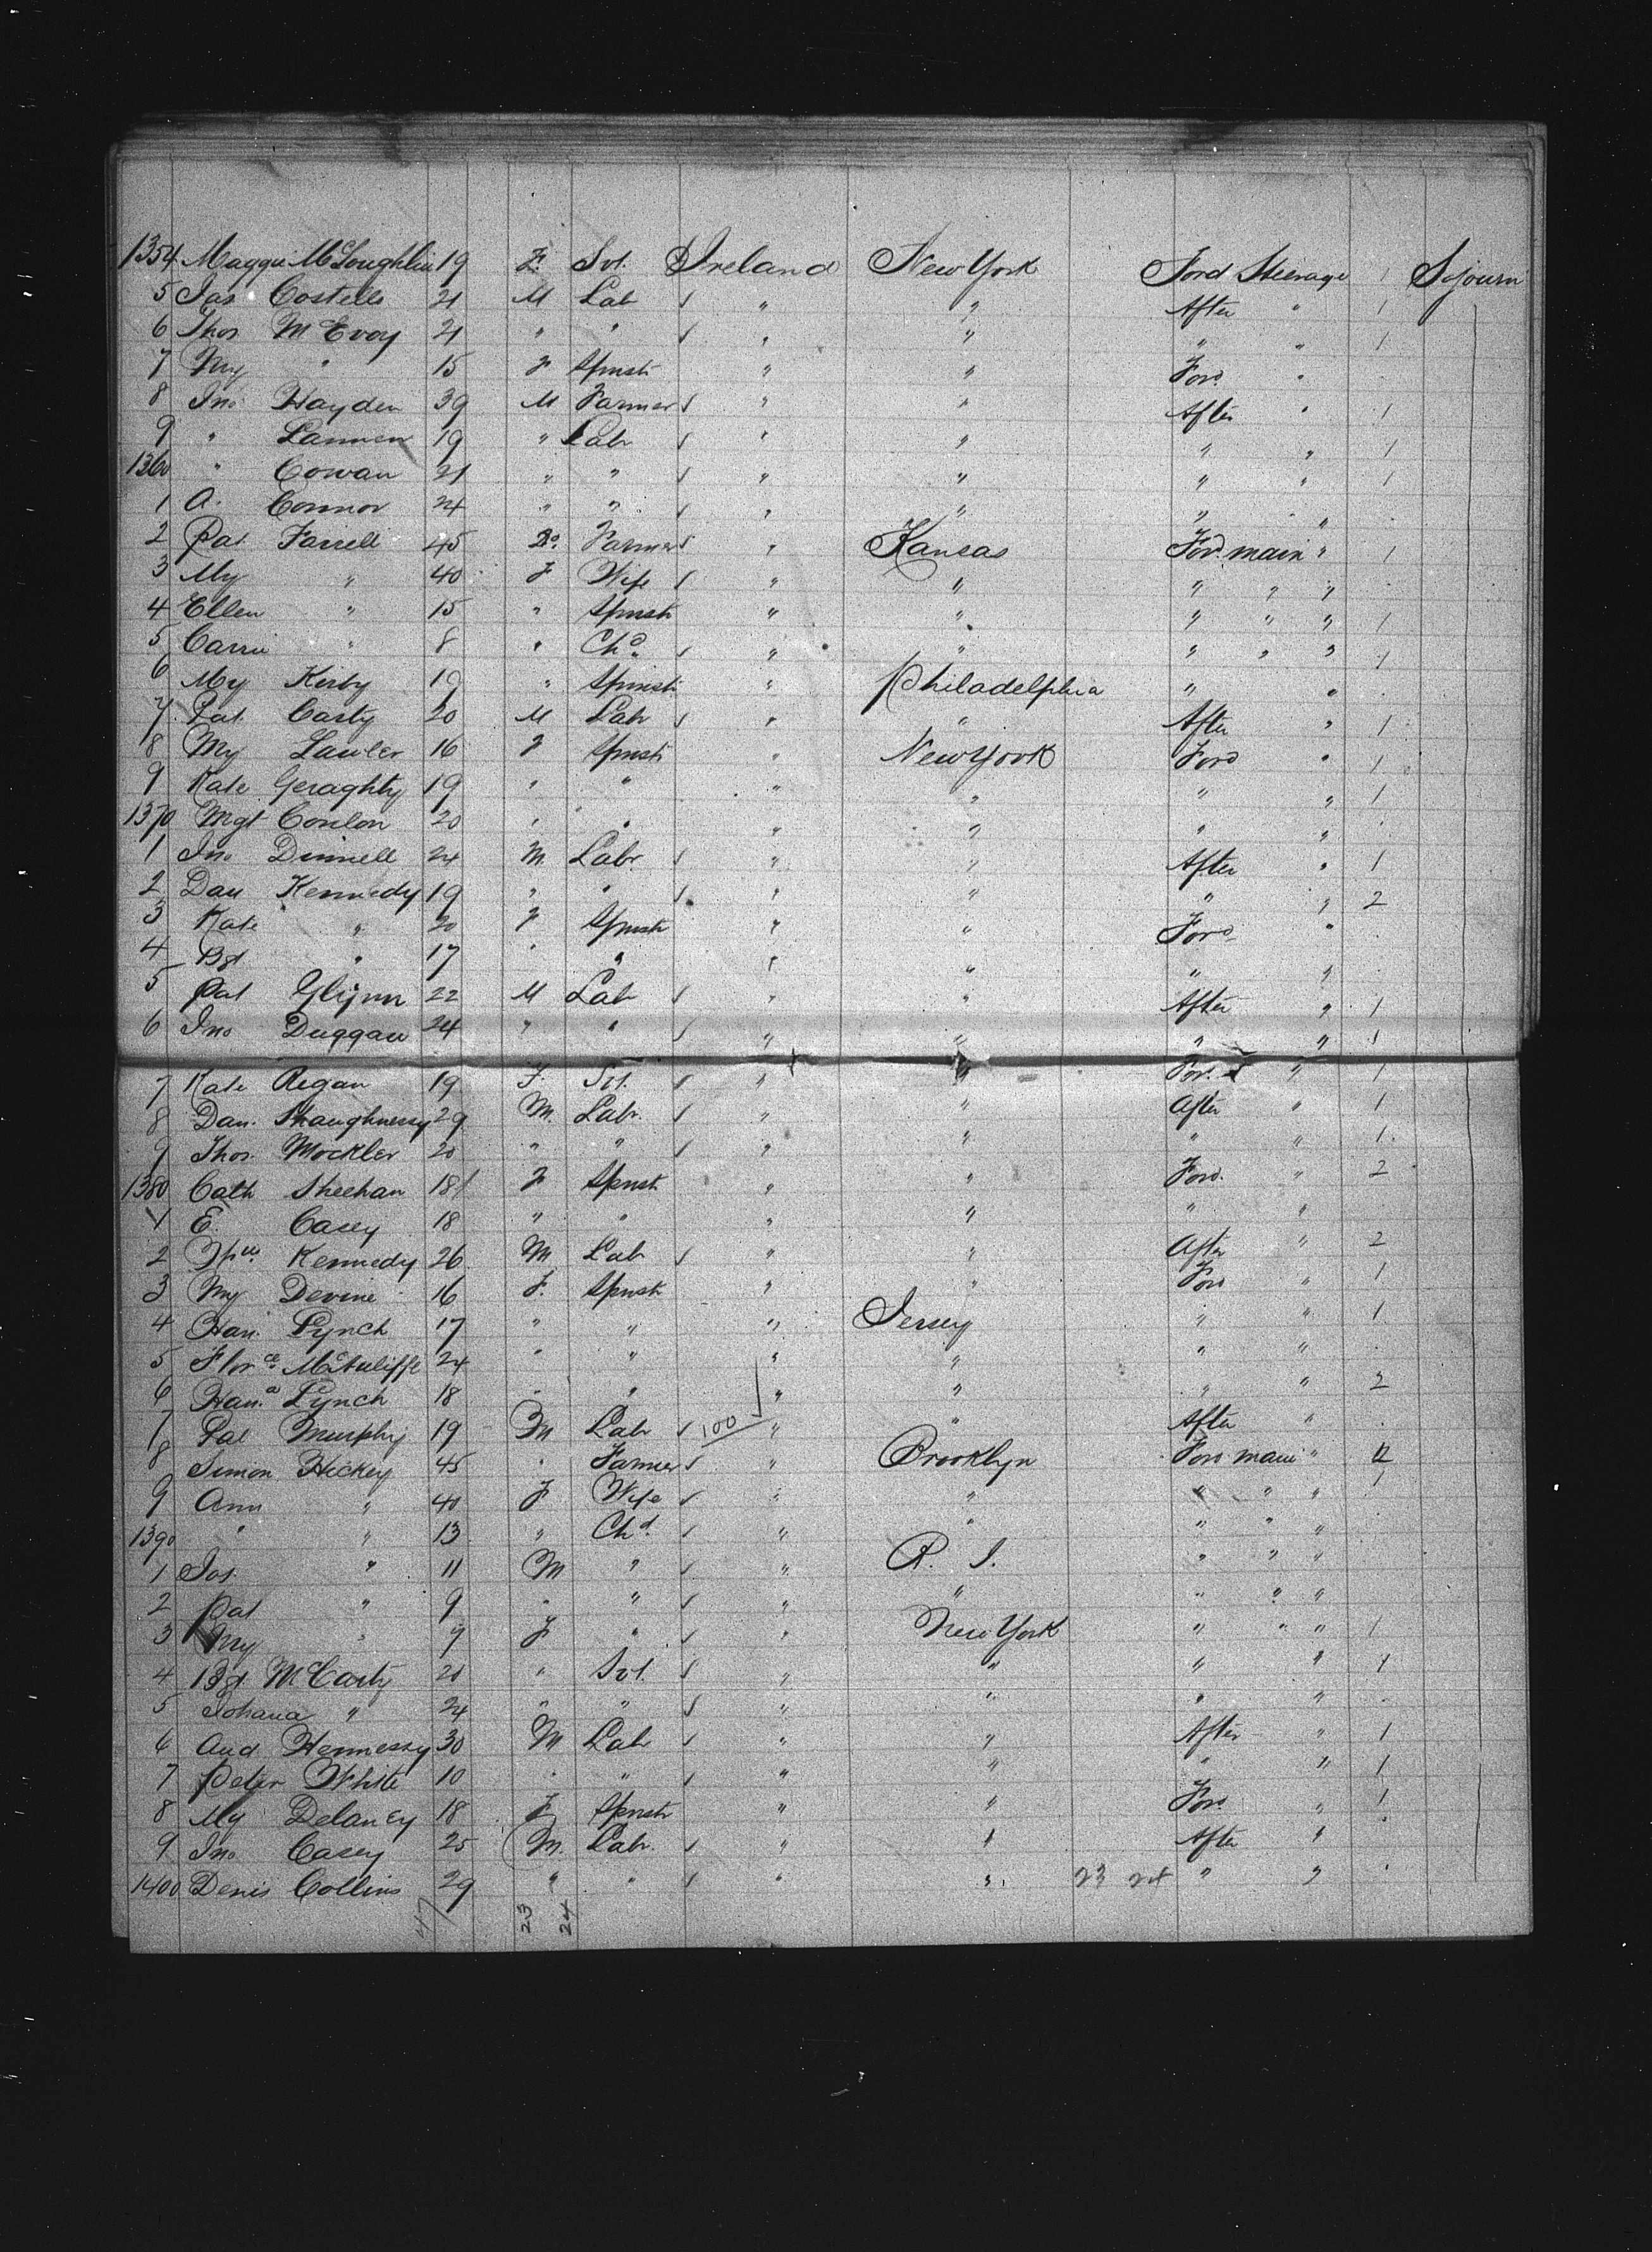 1354 Maggie McLoughlin 19 F. Svt. Ireland New York Ford Steerage 1 Sojourn
5 Jas Costello 21 M Lab " " After " 1
6 Thos McEvoy 21 " " " " " " 1
7 My " 15 F Spnstr " " Ford "
8 Jno Hayden 39 M Farmer " " After " 1
9 " Lannen 19 " Labr " " " " 1
1360 " Cowan 21 " " " " " " 1
1 A. Connor 24 " " " " " "
2 Pat Farrell 45 Do. Farmer " Kansas Ford main " 1
3 My " 40 F Wife " " " " "
4 Ellen " 15 " Spnstr " " " " " 1
5 Carrie " 8 " Chd " " " " " 1
6 My Kirby 19 " Spnstr " Philadelphia " "
7 Pat Carty 20 M Labr " " After " 1
8 My Lawler 16 F Spnstr " New York Ford " 1
9 Kate Geraghty 19 " " " " " " 1
1370 Mgt Conlon 20 " " " " " "
1 Jno Dinnell 24 M Labr " " After " 1
2 Dan Kennedy 19 " " " " " " 2
3 Kate " 20 F Spnstr " " Ford "
4 Bgt " 17 " " " " " "
5 Pat Glynn 22 M Lab " " After " 1
6 Jno Duggan 24 " " " " " " 1
7 Kate Regan 19 F. Svt. " " For. " 1
8 Dan. Shaughnessy 29 M. Labr. " " After " 1
9 Thos. Mockler 20 " " " " " " 1
1380 Cath Sheehan 18 F Spnstr " " Ford. " 2
1 E. Casey 18 " " " " " "
2 Kennedy 26 M Lab " " After " 2
3 My Devine 16 F. Spnstr " " Ford " 1
4 Han. Lynch 17 " " " Jersey " " 1
5 Florce McAuliffe 24 " " " " " "
6 Hana Lynch 18 " " " " " " 2
7 Pat Murphy 19 M Lab 100 " " After "
8 Simon Hickey 45 " Farmer " Brooklyn Ford main "
9 Ann " 40 F Wife " " " " " 1
1390 " " 13 " Chd. " " " " "
1 Jas. " 11 M " " R. I. " " "
2 Pat " 9 " " " " " " "
3 My " 7 F " " New York " " " 1
4 Bgt McCarty 20 " Svt. " " " " 1
5 Johana " 24 " " " " " "
6 And Hennessy 30 M Labr " " After " 1
7 Peter White 10 " " " " " " 1
8 My Delaney 18 F Spnstr " " For. " 1
9 Jno Casey 25 M. Labr. " " After "
1400 Denis Collins 29 " " " " 23 24 " "
47 23 24